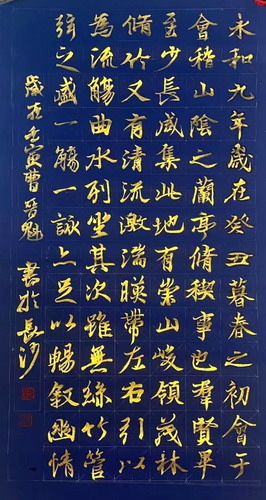 永和九年歲在癸丑暮春之初會于
會稽山陰之蘭亭脩稧事也羣賢畢
至少長咸集此地有崇山峻領茂林
脩竹又有清流激湍暎帶左右引以
為流觴曲水列坐其次雖無絲竹管
弦之盛一觴一詠亦足以暢敘幽情
歲在壬寅曹晉魁 書於長沙